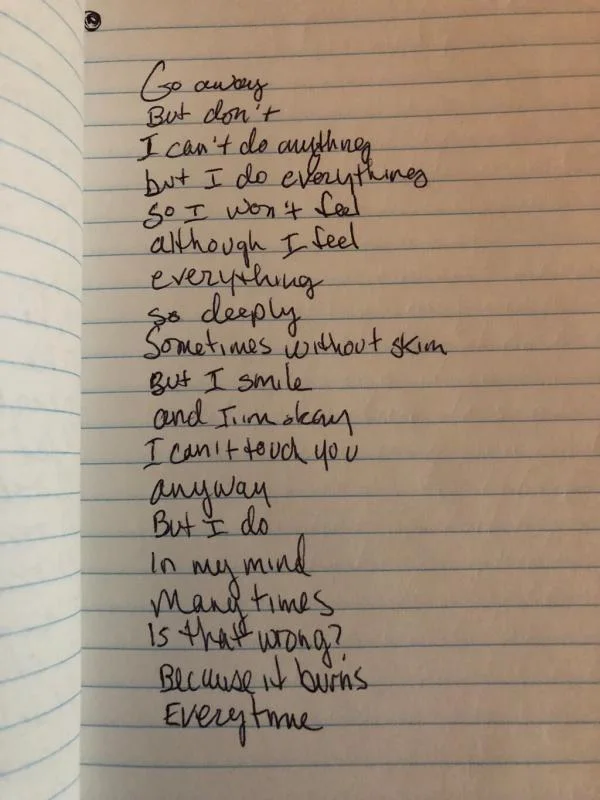 Go away
But don't
I can't do anything
but I do everything
so I won't feel
although I feel
everything
so deeply
Sometimes without skin
But I smile
and I'm okay
I can't touch you
anyway
But I do
In my mind
Many times
Is that wrong?
Because it burns
Everytime